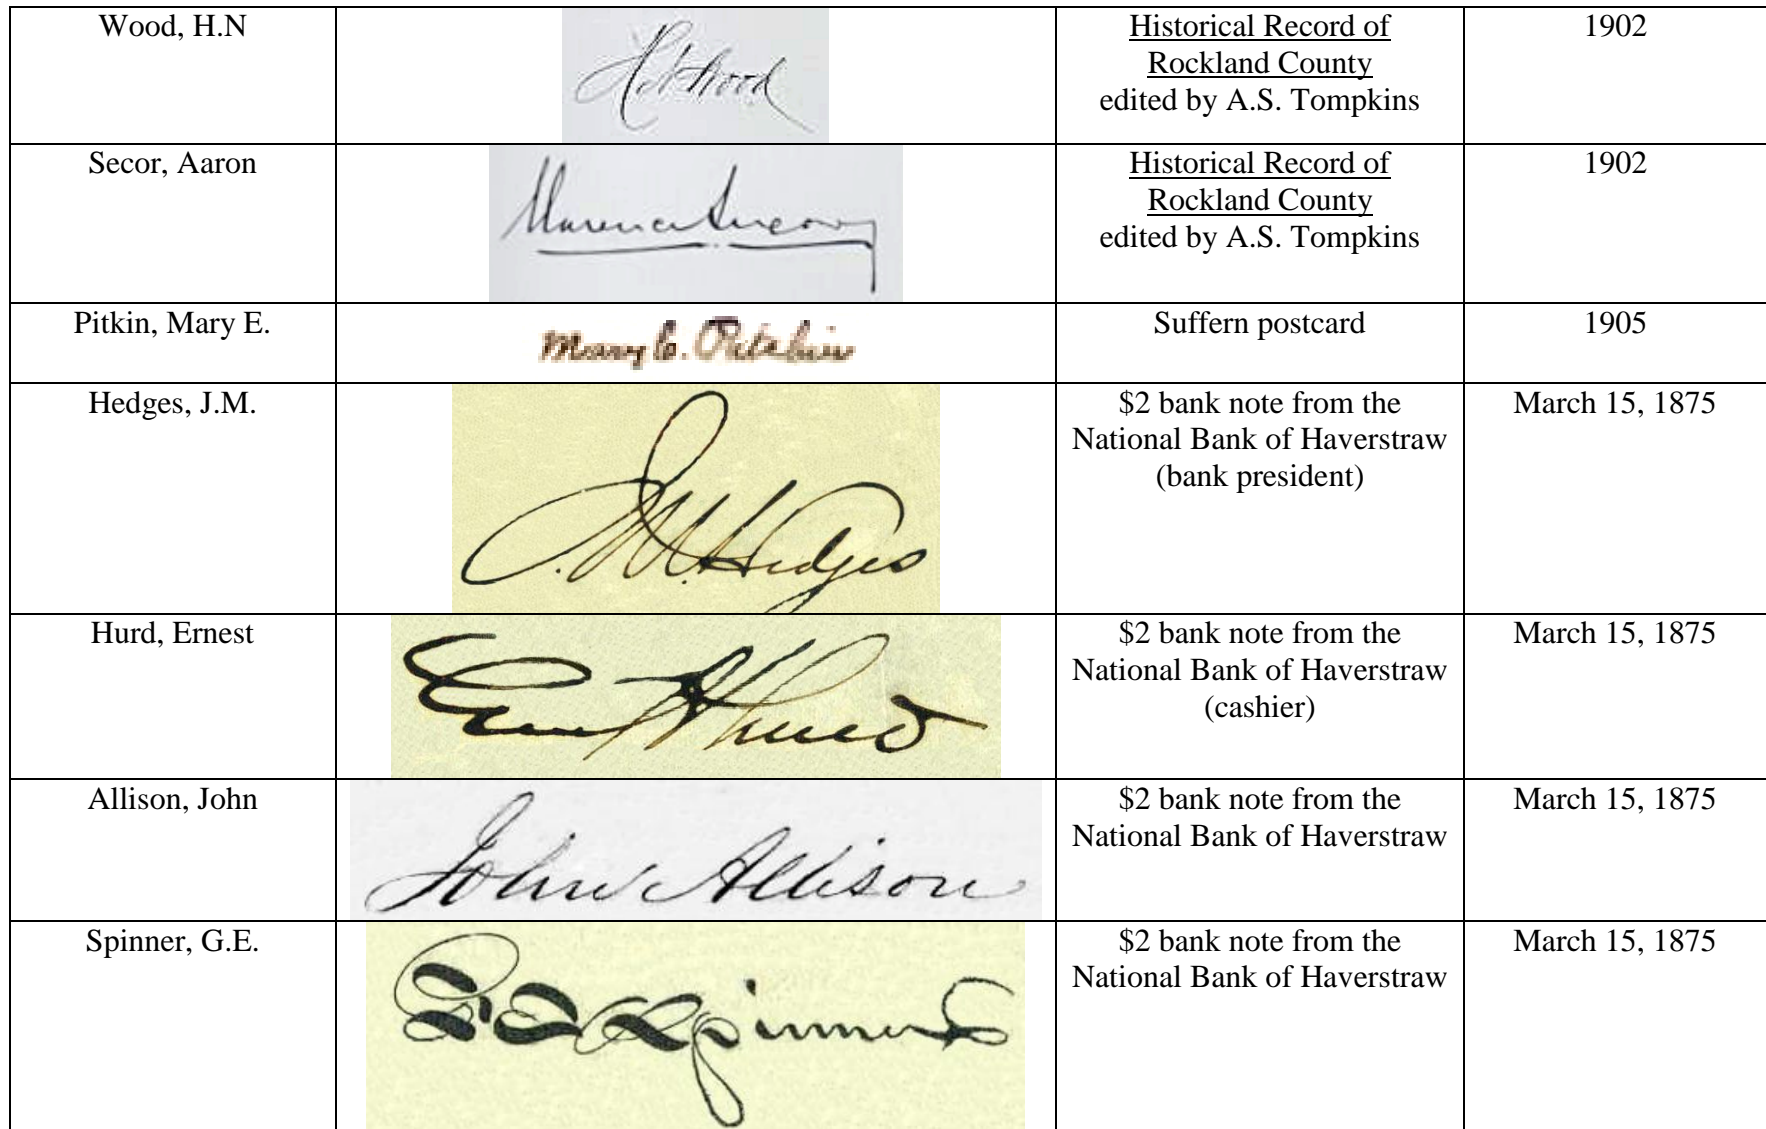 Wood, H.N
H.N. Wood
Historical Record of
Rockland County
edited by A.S. Tompkins
1902
Secor, Aaron
Clarence Secor
Historical Record of
Rockland County
edited by A.S. Tompkins
1902
Pitkin, Mary E.
Mary E.
Suffern postcard
1905
Hedges, J.M.
J.M. Hedges
$2 bank note from the
National Bank of Haverstraw
(bank president)
March 15, 1875
Hurd, Ernest
Hurd
$2 bank note from the
National Bank of Haverstraw
(cashier)
March 15, 1875
Allison, John
John Allison
$2 bank note from the
National Bank of Haverstraw
March 15, 1875
Spinner, G.E.
F E Spinner
$2 bank note from the
National Bank of Haverstraw
March 15, 1875